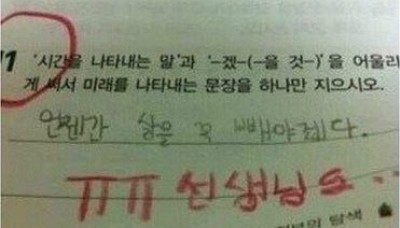 1 '시간을 나타내는 말'과 '-겠-(-을 것-)'을 어울리
게 써서 미래를 나타내는 문장을 하나만 지으시오.
언젠간 살을 꼭 빼야겠다.
ㅠㅠ 선생님도..
탐색